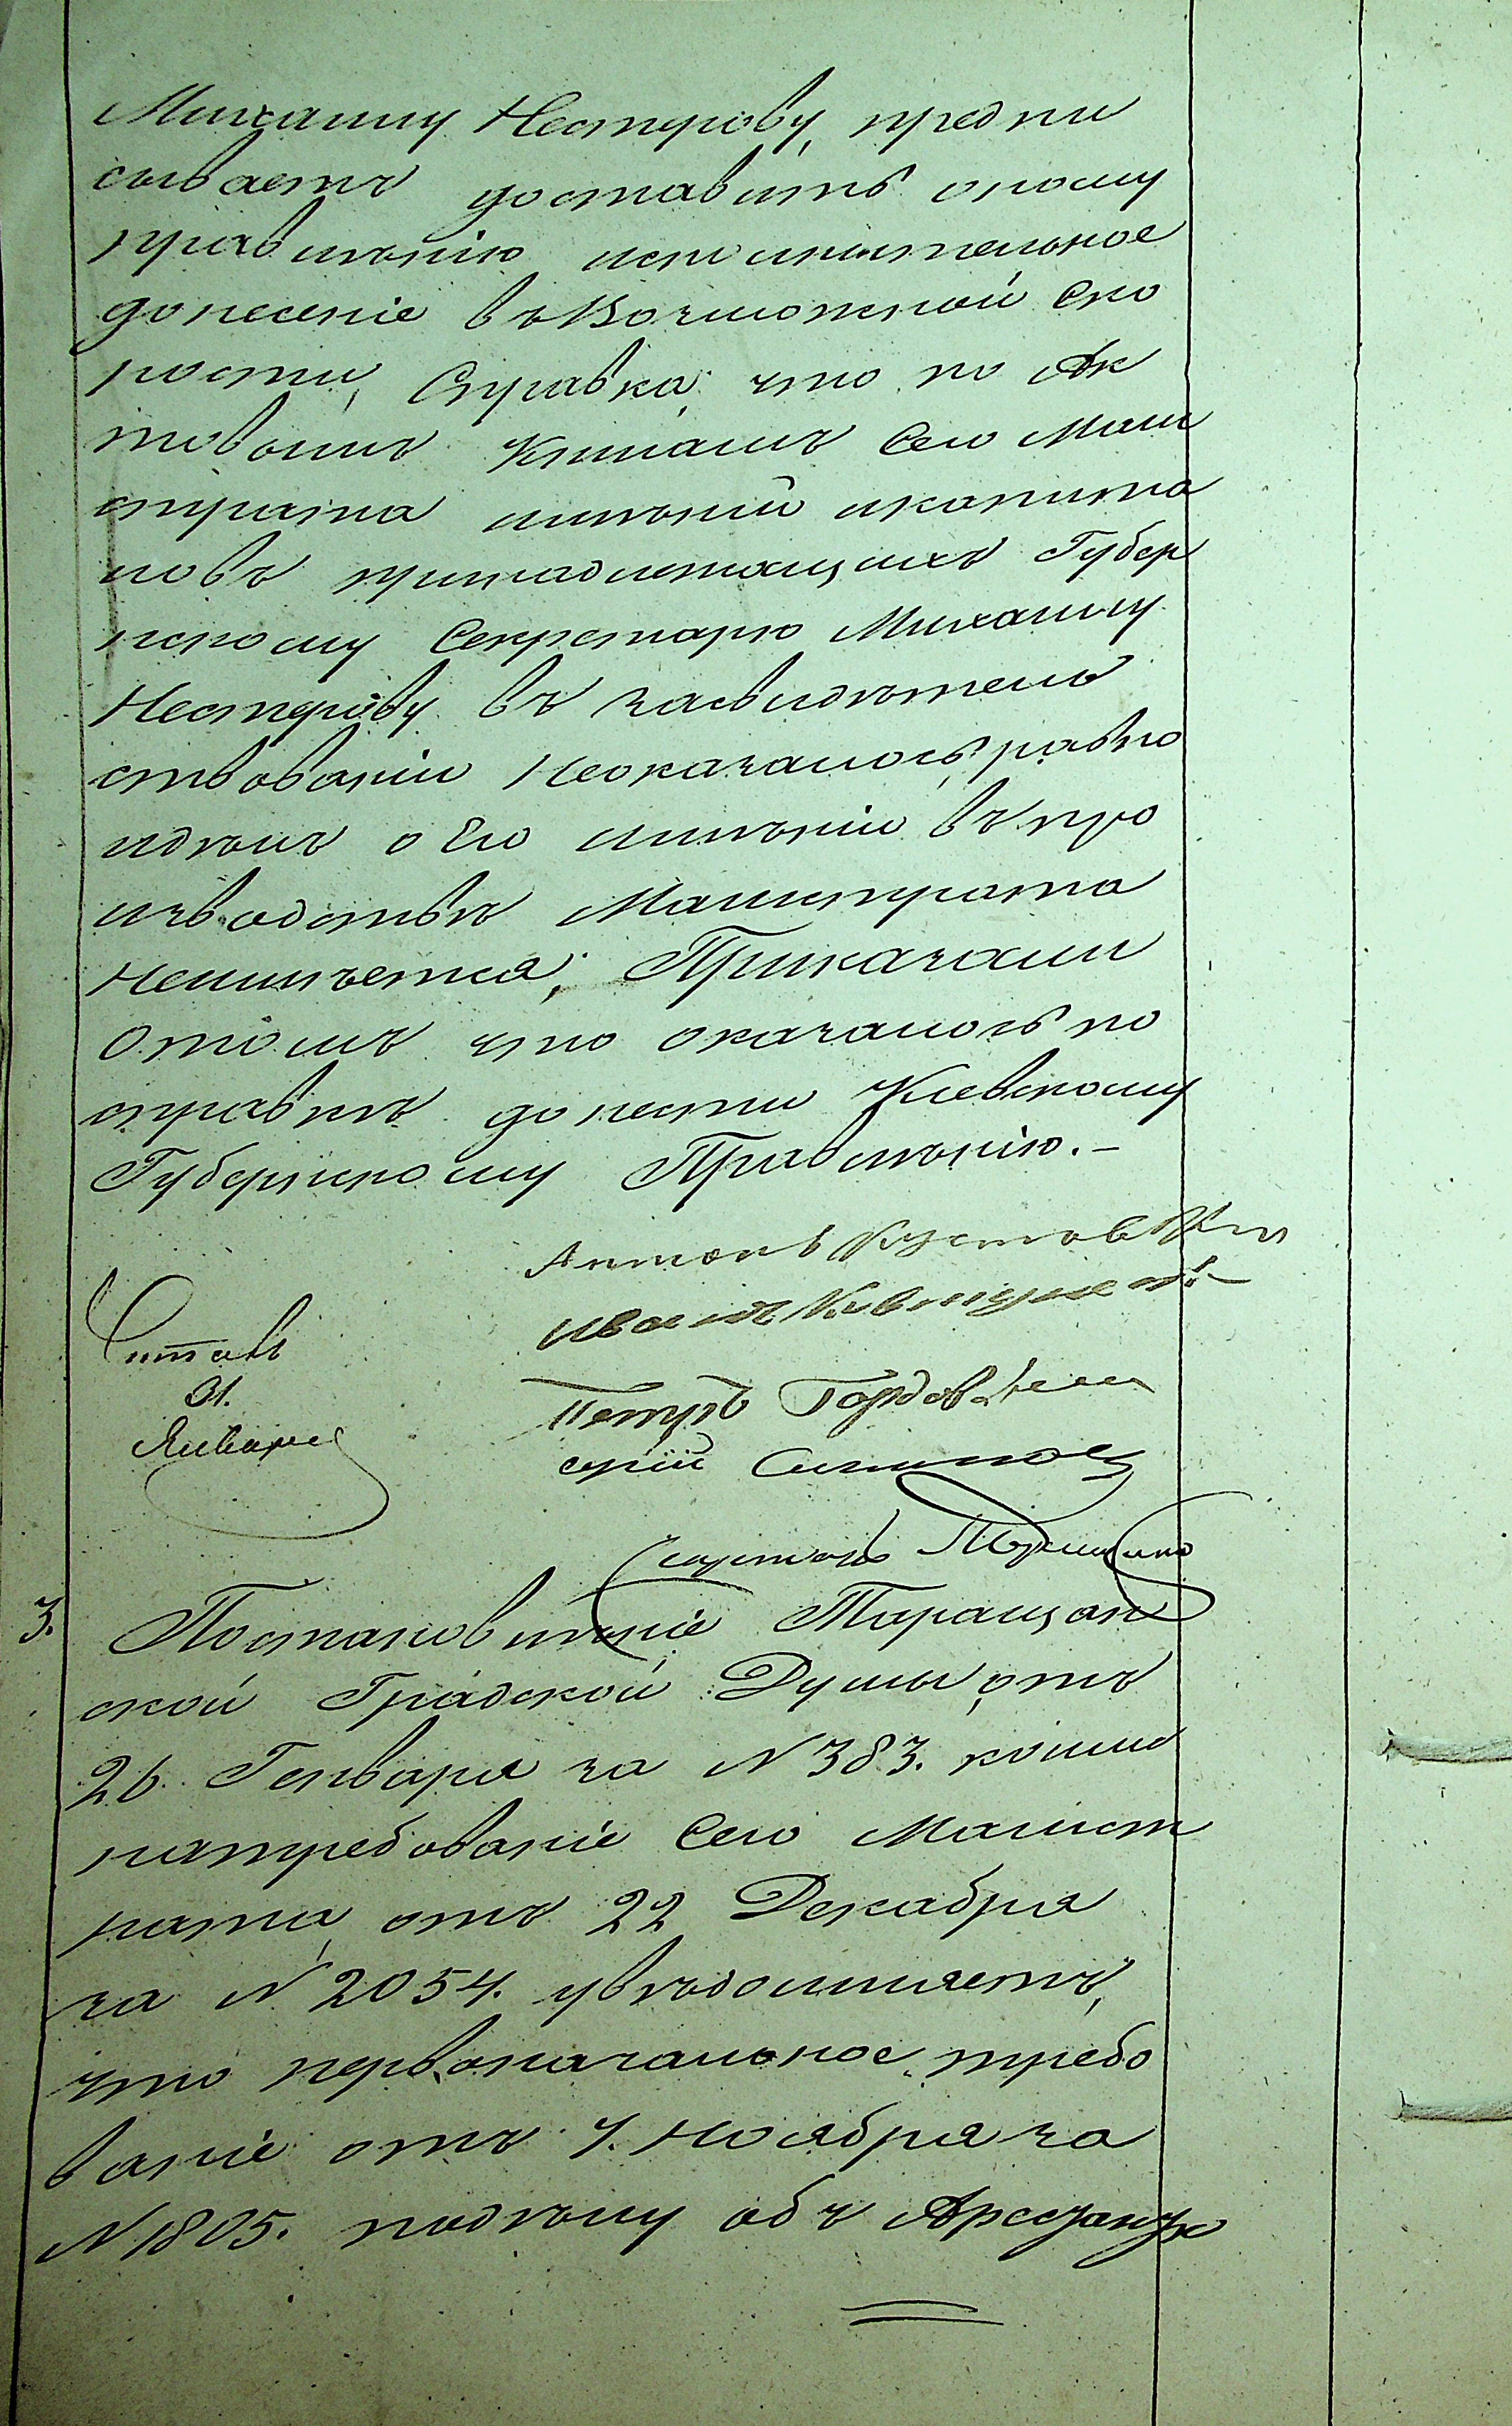 Михаилу Нестерову, предпи
сываетъ доставить оному
правленію исполнительное
донесеніе въ Возможной Ско
рости, Справка: что по Ак
товымъ Книгамъ Сего Маги
страта имѣній икапита
ловъ принадлежащихъ Губер
нскому Секретарю Михаилу
Нестерову въ засвидѣтель
ствованіи Неоказалось, равно
идѣлъ о Его имѣніи въ про
изводствѣ Магистрата
Неимѣется; Приказали
Отомъ что оказалось по
справкѣ донести Кіевскому
Губернскому Правленію.-
Антонъ
Иванъ
Читалъ
31.
Января
Петръ
Секретарь
3.
Постановленіе Таращан
ской Градской Думы, отъ
26. Генваря за N 383. коимъ
натребованіе Сего Магист
рата, отъ 22 Декабря
за N 2054. увѣдомляетъ,
что первоначальное требо
ваніе отъ 7. Ноября за
N 1805. подѣлу объ